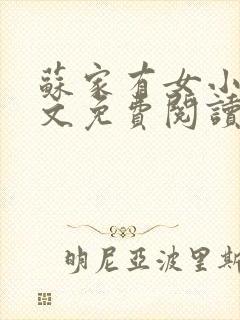 蘇家有女小
文免費閱讀
明尼亞波里斯